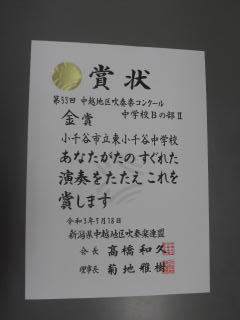 賞状
第53回 中越地区吹奏楽コンクール
中学校Bの部Ⅱ
金賞
小千谷市立東小千谷中学校
あなたがたの すぐれた
演奏をたたえ これを
賞します
令和3年7月18日
新潟県中越地区吹奏楽連盟
会長 髙橋和久
理事長 菊地雅樹